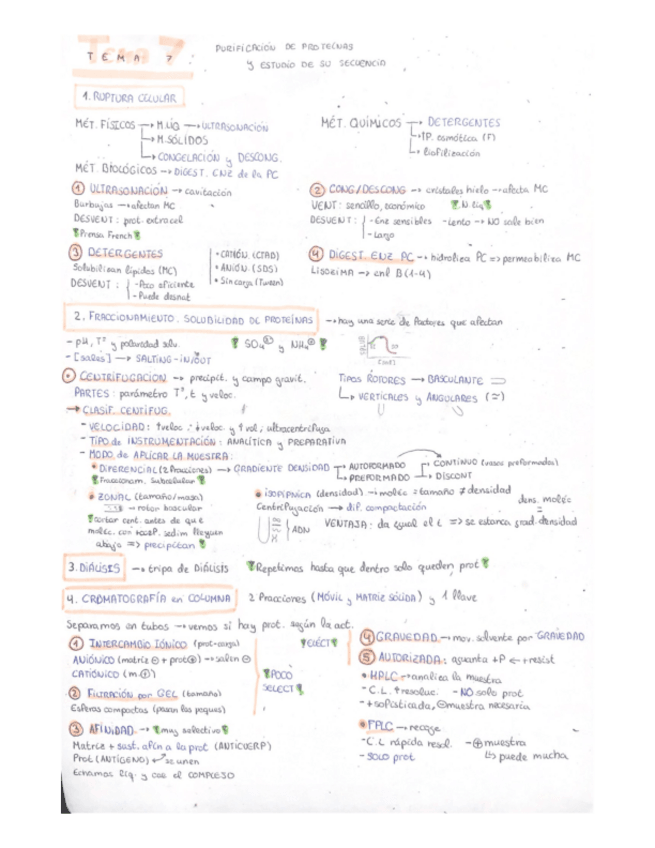 Tema 7
TEMA 7
PURIFICACIÓN DE PROTEÍNAS
Y ESTUDIO DE SU SECUENCIA
1. RUPTURA CELULAR
MÉT. FÍSICOS → M.LIQ → ULTRASONACIÓN
→ M.SÓLIDOS
→ CONGELACIÓN y DESCONG.
MÉT. BIOLÓGICOS → DIGEST. ENZ de la PC
MÉT. QUÍMICOS → DETERGENTES
→ P. osmótica (F)
→ liofilización
① ULTRASONACIÓN → cavitación
Burbujas → afectan MC
DESVENT: prot. extracel
Prensa French
② CONG/DESCONG → cristales hielo → afecta MC
VENT: sencillo, económico N. liq
DESVENT: - Enz sensibles - Lento → NO sale bien
- Largo
③ DETERGENTES
Solubilizan lípidos (MC)
DESVENT: - Poco eficiente
- Puede desnat
• CATIÓN. (CTAB)
• ANIÓN. (SDS)
• Sin carga (Tween)
④ DIGEST. ENZ PC → hidroliza PC => permeabiliza MC
LISOZIMA → enl B(1-4)
2. FRACCIONAMIENTO. SOLUBILIDAD DE PROTEÍNAS → hay una serie de factores que afectan
- pH, Tª y polaridad solv.
- [sales] → SALTING-IN/OUT
SO4 y NH4
CENTRIFUGACIÓN → precipit. y campo gravit.
PARTES: parámetro Tª, t y veloc.
Tipos ROTORES → BASCULANTE
→ VERTICALES y ANGULARES (≈)
→ CLASIF. CENTÍFUG.
- VELOCIDAD: ↑veloc ∴ ↓veloc y ↑vol; ultracentrífuga
- TIPO de INSTRUMENTACIÓN: ANALÍTICA y PREPARATIVA
- MODO de APLICAR LA MUESTRA:
• DIFERENCIAL (2 fracciones) → GRADIENTE DENSIDAD → AUTOFORMADO
→ PREFORMADO
→ CONTINUO (vasos preformados)
→ DISCONT
Fraccionam. Subcelular
• ZONAL (tamaño/masa)
→ rotor bascular
cortar cent. antes de que
moléc. con coef. sedim lleguen
abajo => precipitan
• ISOPÍCNICA (densidad) → moléc = tamaño ≠ densidad
Centrifugación → dif. compactación
ADN
VENTAJA: da igual el t => se estanca grad. densidad
dens. moléc
3. DIÁLISIS → tripa de Diálisis Repetimos hasta que dentro solo queden prot
4. CROMATOGRAFÍA en COLUMNA 2 fracciones (MÓVIL y MATRIZ SÓLIDA) y 1 llave
Separamos en tubos → vemos si hay prot. según la act.
① INTERCAMBIO IÓNICO (prot-carga)
ANIÓNICO (matriz ⊖ + prot⊕) → salen ⊖
CATIÓNICO (m ⊕)
② FILTRACIÓN por GEL (tamaño)
Esferas compactas (pasan las peques)
③ AFINIDAD → muy selectivo
Matriz + sust. afín a la prot (ANTICUERP)
Prot (ANTÍGENO) se unen
Echamos liq. y cae el COMPLEJO
ELÉCT
POCO
SELECT
④ GRAVEDAD → mov. solvente por GRAVEDAD
⑤ AUTORIZADA: aguanta +P ← +resist
• HPLC → analiza la muestra
- C.L. ↑ resoluc. - NO solo prot
- + sofisticada, ⊖ muestra necesaria
• FPLC → recoge
- C.L rápida resol. - ⊕ muestra
- SOLO prot
↳ puede mucha